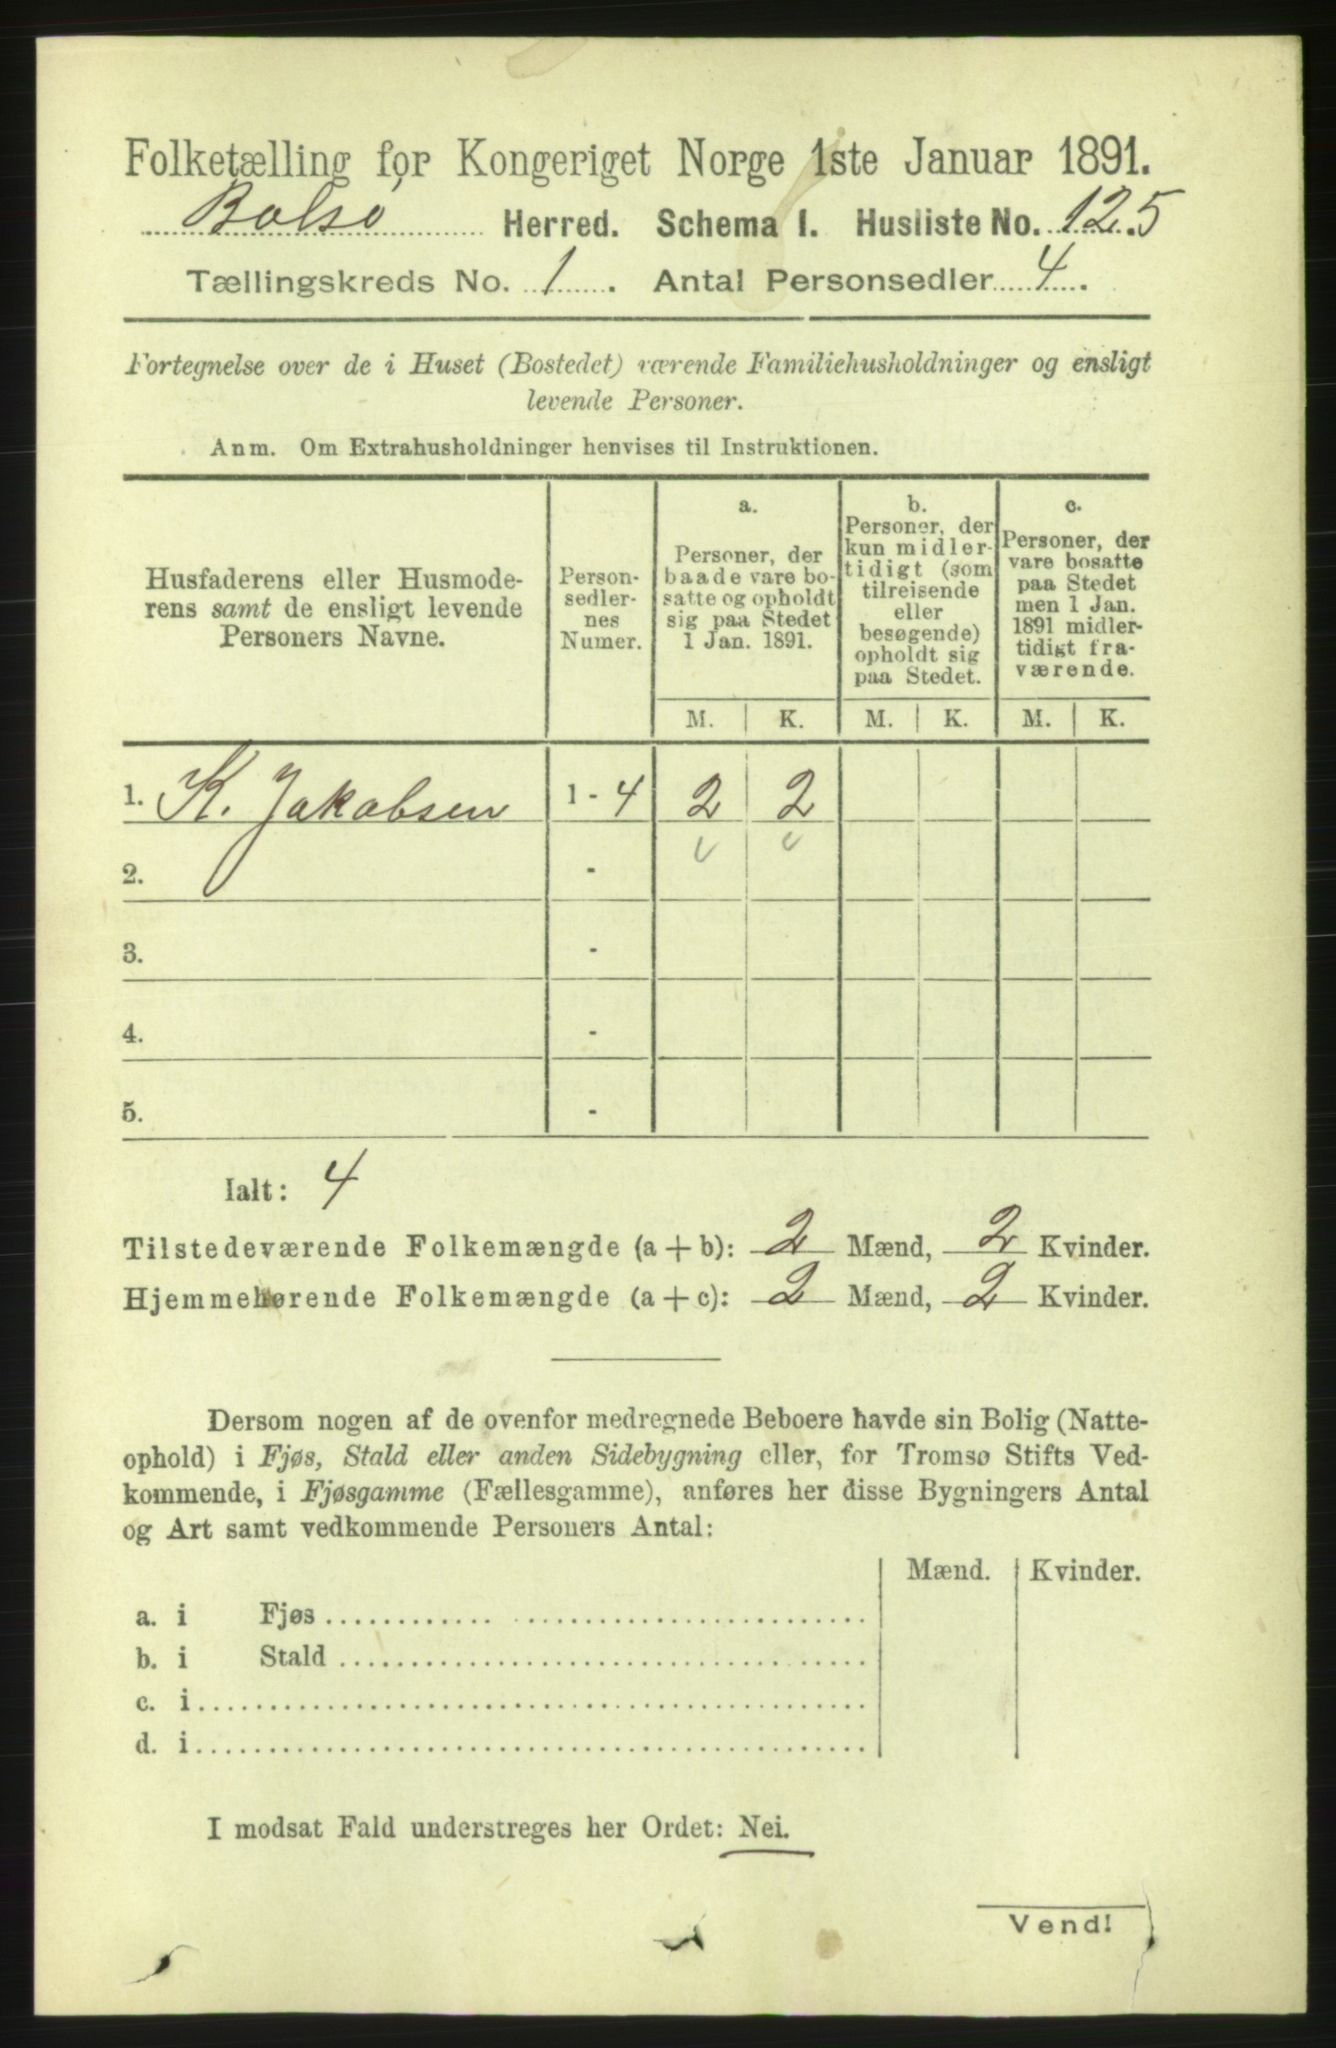 Folketælling for Kongeriget Norge 1ste Januar 1891.
Bolsø Herred. Schema I. Husliste No. 125
Tællingskreds No. 1. Antal Personsedler 4.
Fortegnelse over de i Huset (Bostedet) værende Familiehusholdninger og ensligt
levende Personer.
Anm. Om Extrahusholdninger henvises til Instruktionen.
Husfaderens eller Husmode-
rens samt de ensligt levende
Personers Navne.
Person-
sedler-
nes
Numer.
a.
Personer, der
baade vare bo-
satte og opholdt
sig paa Stedet
1 Jan. 1891.
b.
Personer, der
kun midler-
tidigt (som
tilreisende
eller
besøgende)
opholdt sig
paa Stedet.
c.
Personer, der
vare bosatte
paa Stedet
men 1 Jan.
1891 midler-
tidigt fra-
værende.
M. K. M. K. M. K.
1. K. Jakobsen 1 - 4 2 2
2. -
3. -
4. -
5. -
Ialt: 4
Tilstedeværende Folkemængde (a + b): 2 Mænd, 2 Kvinder.
Hjemmehørende Folkemængde (a + c): 2 Mænd, 2 Kvinder.
Dersom nogen af de ovenfor medregnede Beboere havde sin Bolig (Natte-
ophold) i Fjøs, Stald eller anden Sidebygning eller, for Tromsø Stifts Ved-
kommende, i Fjøsgamme (Fællesgamme), anføres her disse Bygningers Antal
og Art samt vedkommende Personers Antal:
Mænd. Kvinder.
a. i Fjøs
b. i Stald
c. i
d. i
I modsat Fald understreges her Ordet: Nei.
Vend!